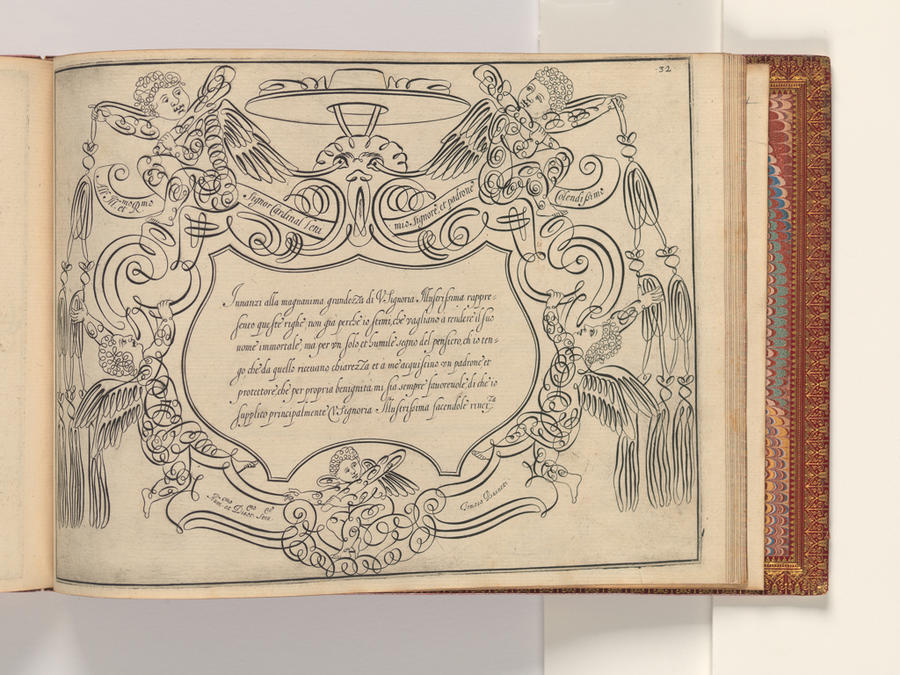 32
Ill.mo et R.mo mio
Signor Cardinal Seni
mio Signore, et padrone
Colendissimo
Innanzi alla magnanima grandezza di V. Signoria Illustrissima rappre-
sento queste righe, non già perchè io stimi, che vagliano a rendere il suo
nome immortale, ma per vn solo et humile segno del pensiero, ch'io ten-
go che da quello riceuano chiarezza et a me acquistino vn padrone et
protettore, che per propria benignità mi sia sempre fauoreuole, di che io
supplico principalmente V. Signoria Illustrissima facendole riuer.za
Hum.mo et Diuot.mo Ser.re